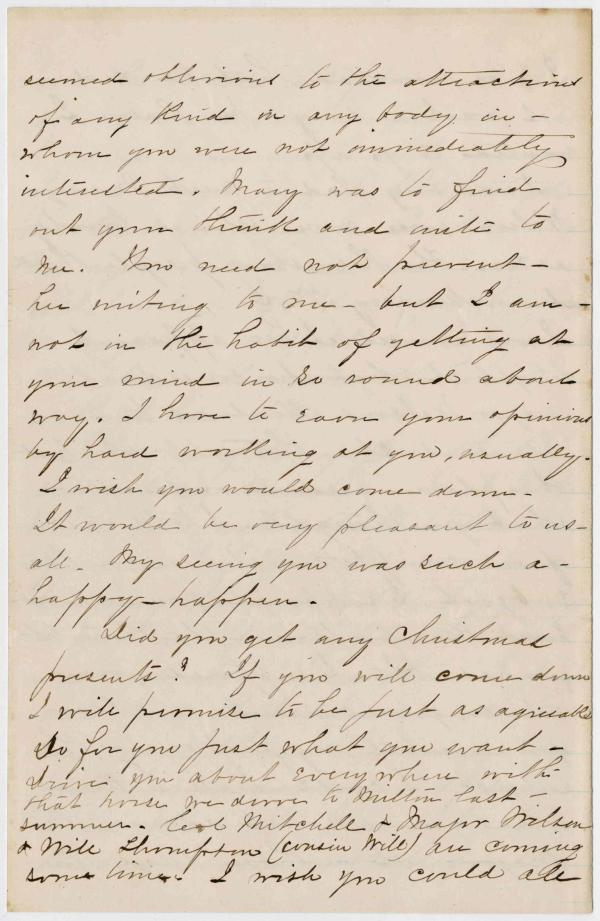 seemed oblivious to the attractions
of any kind in any body in-
whom you were not immediately
interested. Mary was to find
out your think and write to
me. You need not prevent-
her writing to me - but I am-
not in the habit of getting at
your mind in so round about
way. I have to earn your opinions
by hard working at you, usually.
I wish you would come down-
It would be very pleasant to us-
all. My seeing you was such a-
happy-happen.
Did you get any Christmas
presents? If you will come down
I will promise to be just as agreeable
do for you just what you want-
Drive you about everywhere with-
that horse we drove to Milton last-
summer. Col Mitchell & Major Wilson
& Will Thompson (cousin Will) are coming
some time. I wish you could all